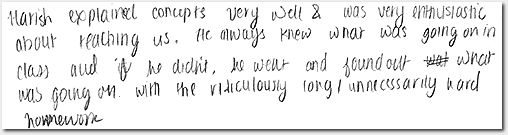 Harish explained concepts very well & was very enthusiastic
about teaching us. He always knew what was going on in
class and if he didn't, he went and found out what
was going on. with the ridiculously long/unnecessarily hard
homework